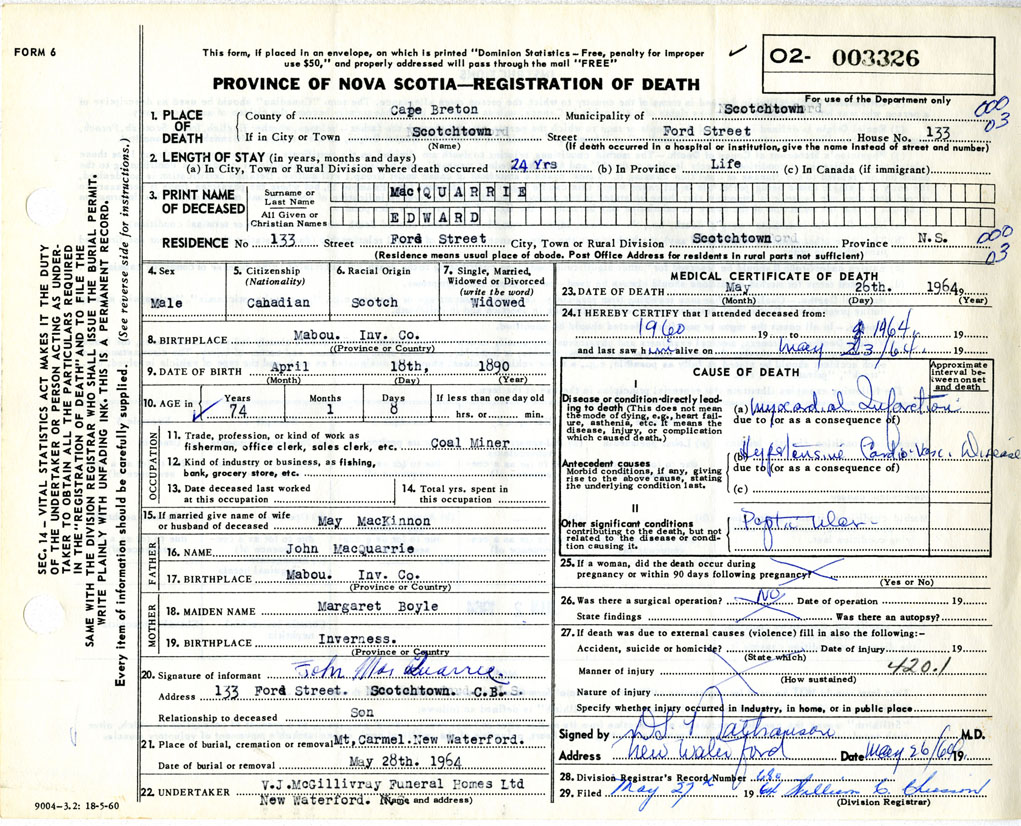 FORM 6
This form, if placed in an envelope, on which is printed "Dominion Statistics – Free, penalty for improper
use $50," and properly addressed will pass through the mail "FREE"
02- 003326
PROVINCE OF NOVA SCOTIA—REGISTRATION OF DEATH
For use of the Department only
1. PLACE OF DEATH
County of Cape Breton Municipality of Scotchtown 000
If in City or Town Scotchtown Street Ford Street House No. 133 03
(Name) (If death occurred in a hospital or institution, give the name instead of street and number)
2. LENGTH OF STAY (in years, months and days)
(a) In City, Town or Rural Division where death occurred 24 Yrs (b) In Province Life (c) In Canada (if immigrant)
3. PRINT NAME OF DECEASED
Surname or Last Name MacQUARRIE
All Given or Christian Names EDWARD
RESIDENCE No 133 Street Ford Street City, Town or Rural Division Scotchtown Province N.S. 000
(Residence means usual place of abode. Post Office Address for residents in rural parts not sufficient) 03
4. Sex
Male
5. Citizenship
(Nationality)
Canadian
6. Racial Origin
Scotch
7. Single, Married,
Widowed or Divorced
(write the word)
Widowed
8. BIRTHPLACE Mabou. Inv. Co.
(Province or Country)
9. DATE OF BIRTH April 18th, 1890
(Month) (Day) (Year)
10. AGE in Years Months Days If less than one day old
74 1 8 hrs. or min.
OCCUPATION
11. Trade, profession, or kind of work as
fisherman, office clerk, sales clerk, etc. Coal Miner
12. Kind of industry or business, as fishing,
bank, grocery store, etc.
13. Date deceased last worked
at this occupation
14. Total yrs. spent in
this occupation
15. If married give name of wife
or husband of deceased May MacKinnon
FATHER
16. NAME John MacQuarrie
17. BIRTHPLACE Mabou. Inv. Co.
(Province or Country)
MOTHER
18. MAIDEN NAME Margaret Boyle
19. BIRTHPLACE Inverness.
(Province or Country)
20. Signature of informant John MacQuarrie
Address 133 Ford Street. Scotchtown. C.B.
Relationship to deceased Son
21. Place of burial, cremation or removal Mt, Carmel. New Waterford.
Date of burial or removal May 28th. 1964
22. UNDERTAKER V.J.McGillivray Funeral Homes Ltd
New Waterford. (Name and address)
MEDICAL CERTIFICATE OF DEATH
23. DATE OF DEATH May 26th. 1964, 19
(Month) (Day) (Year)
24. I HEREBY CERTIFY that I attended deceased from:
1960 19 to 1964, 19
and last saw him alive on May 23/64. 19
CAUSE OF DEATH
Approximate
interval be-
tween onset
and death
I
Disease or condition directly lead-
ing to death (This does not mean
the mode of dying, e.g., heart fail-
ure, asthenia, etc. It means the
disease, injury, or complication
which caused death.)
(a) Myocardial Infarction
due to (or as a consequence of)
(b) Hypertensive Cardio-Vasc. Disease
due to (or as a consequence of)
(c)
Antecedent causes
Morbid conditions, if any, giving
rise to the above cause, stating
the underlying condition last.
II
Other significant conditions
contributing to the death, but not
related to the disease or condi-
tion causing it.
Peptic Ulcer
25. If a woman, did the death occur during
pregnancy or within 90 days following pregnancy?
(Yes or No)
26. Was there a surgical operation? NO Date of operation 19
State findings Was there an autopsy?
27. If death was due to external causes (violence) fill in also the following:–
Accident, suicide or homicide? Date of injury 19
(State which)
Manner of injury 420.1
(How sustained)
Nature of injury
Specify whether injury occurred in industry, in home, or in public place
Signed by Nathanson M.D.
Address New Waterford Date May 26/64 19
28. Division Registrar's Record Number
29. Filed May 27th 1964 William C. Chiasson
(Division Registrar)
SEC. 14 – VITAL STATISTICS ACT MAKES IT THE DUTY
OF THE UNDERTAKER OR PERSON ACTING AS UNDER-
TAKER TO OBTAIN ALL THE PARTICULARS REQUIRED
IN THE "REGISTRATION OF DEATH" AND TO FILE THE
SAME WITH THE DIVISION REGISTRAR WHO SHALL ISSUE THE BURIAL PERMIT.
WRITE PLAINLY WITH UNFADING INK. THIS IS A PERMANENT RECORD.
Every item of information should be carefully supplied. (See reverse side for instructions.)
9004-3.2: 18-5-60